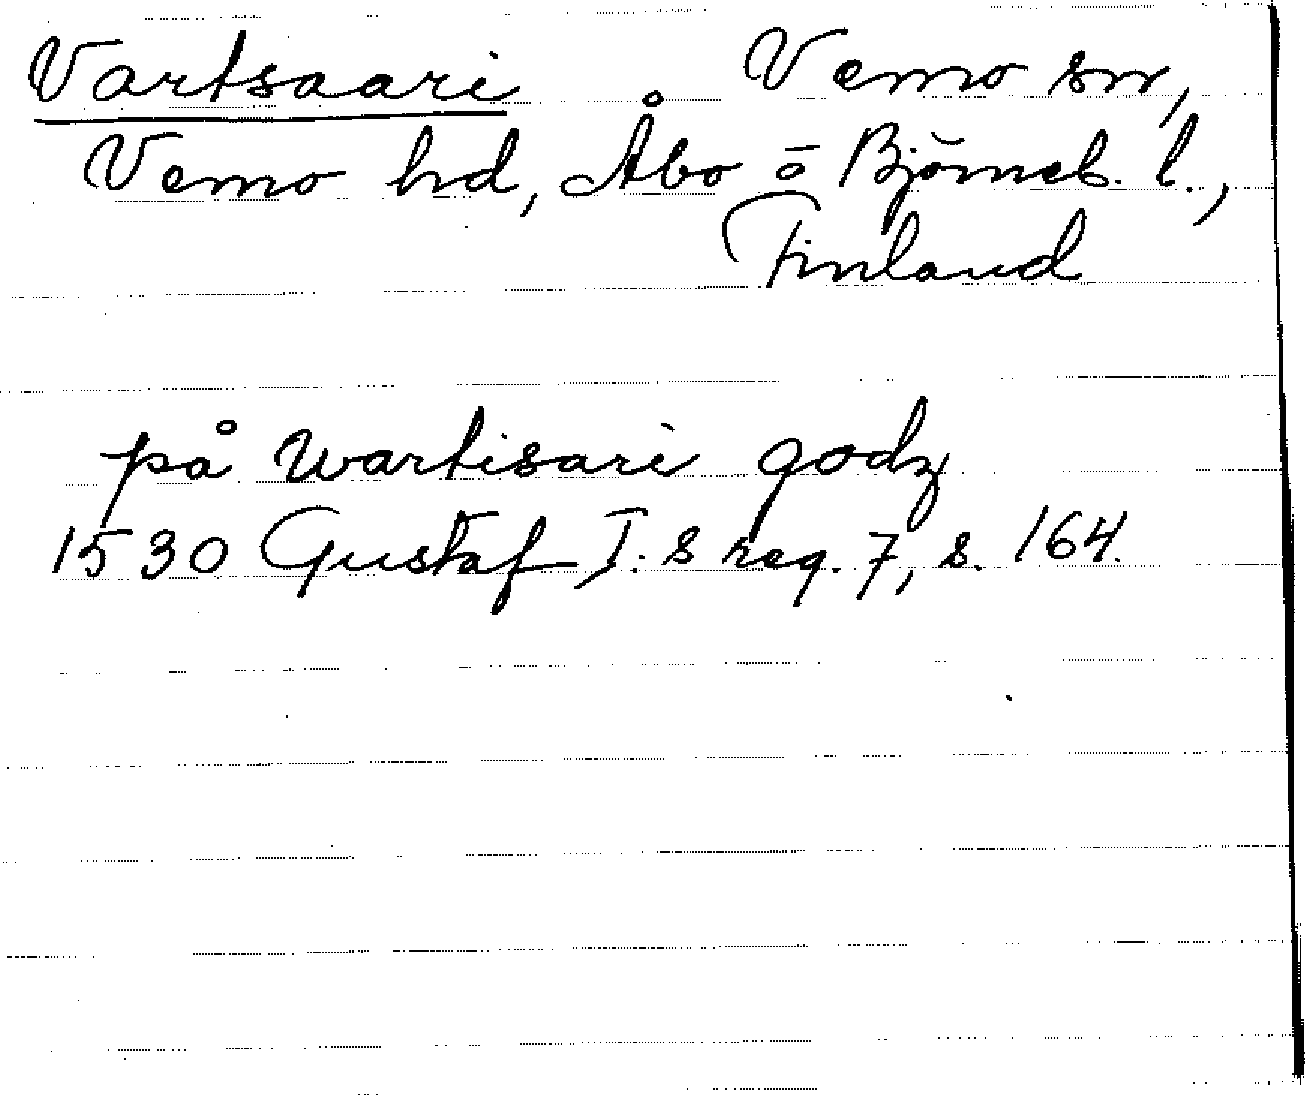 Vartsaari Vemo sn,
Vemo hd, Åbo o Björneb. l.,
Finland
på wartisari godz
1530 Gustaf I:s reg. 7, s. 164.